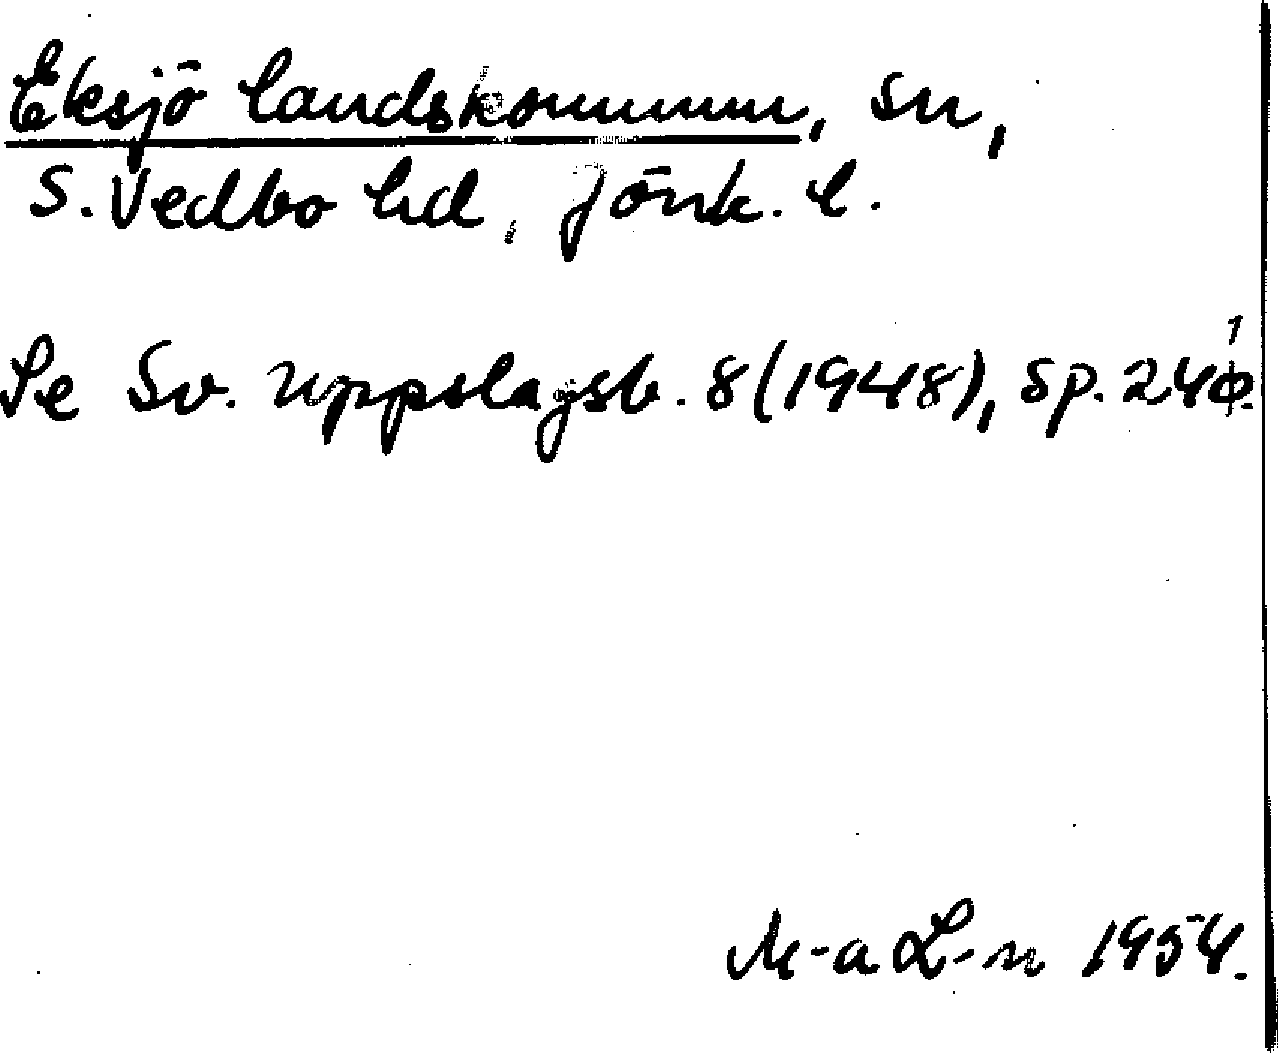 Eksjö landskommun, sn,
S. Vedbo hd, Jönk. l.
Se Sv. uppslagsb. 8 (1948), sp. 241.
M-a L-n 1954.